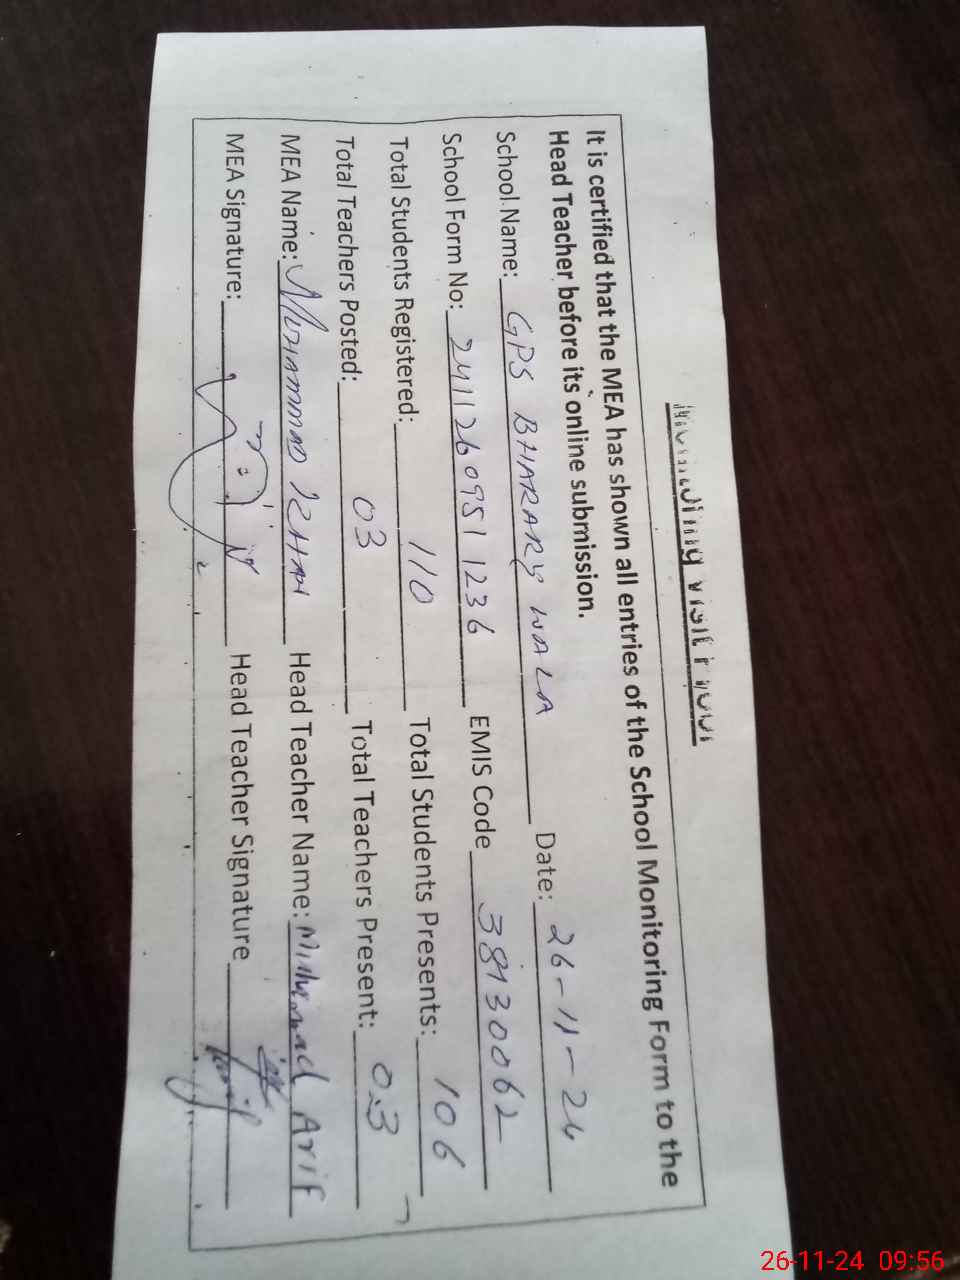 It is certified that the MEA has shown all entries of the School Monitoring Form to the
Head Teacher before its online submission.
School Name: GPS BHARARY WALA Date: 26-11-24
School Form No: 24112609511236 EMIS Code 38130062
Total Students Registered: 110 Total Students Presents: 106
Total Teachers Posted: 03 Total Teachers Present: 03
MEA Name: MUHAMMAD KHAN Head Teacher Name: Muhammad Arif
MEA Signature: Head Teacher Signature
26-11-24 09:56